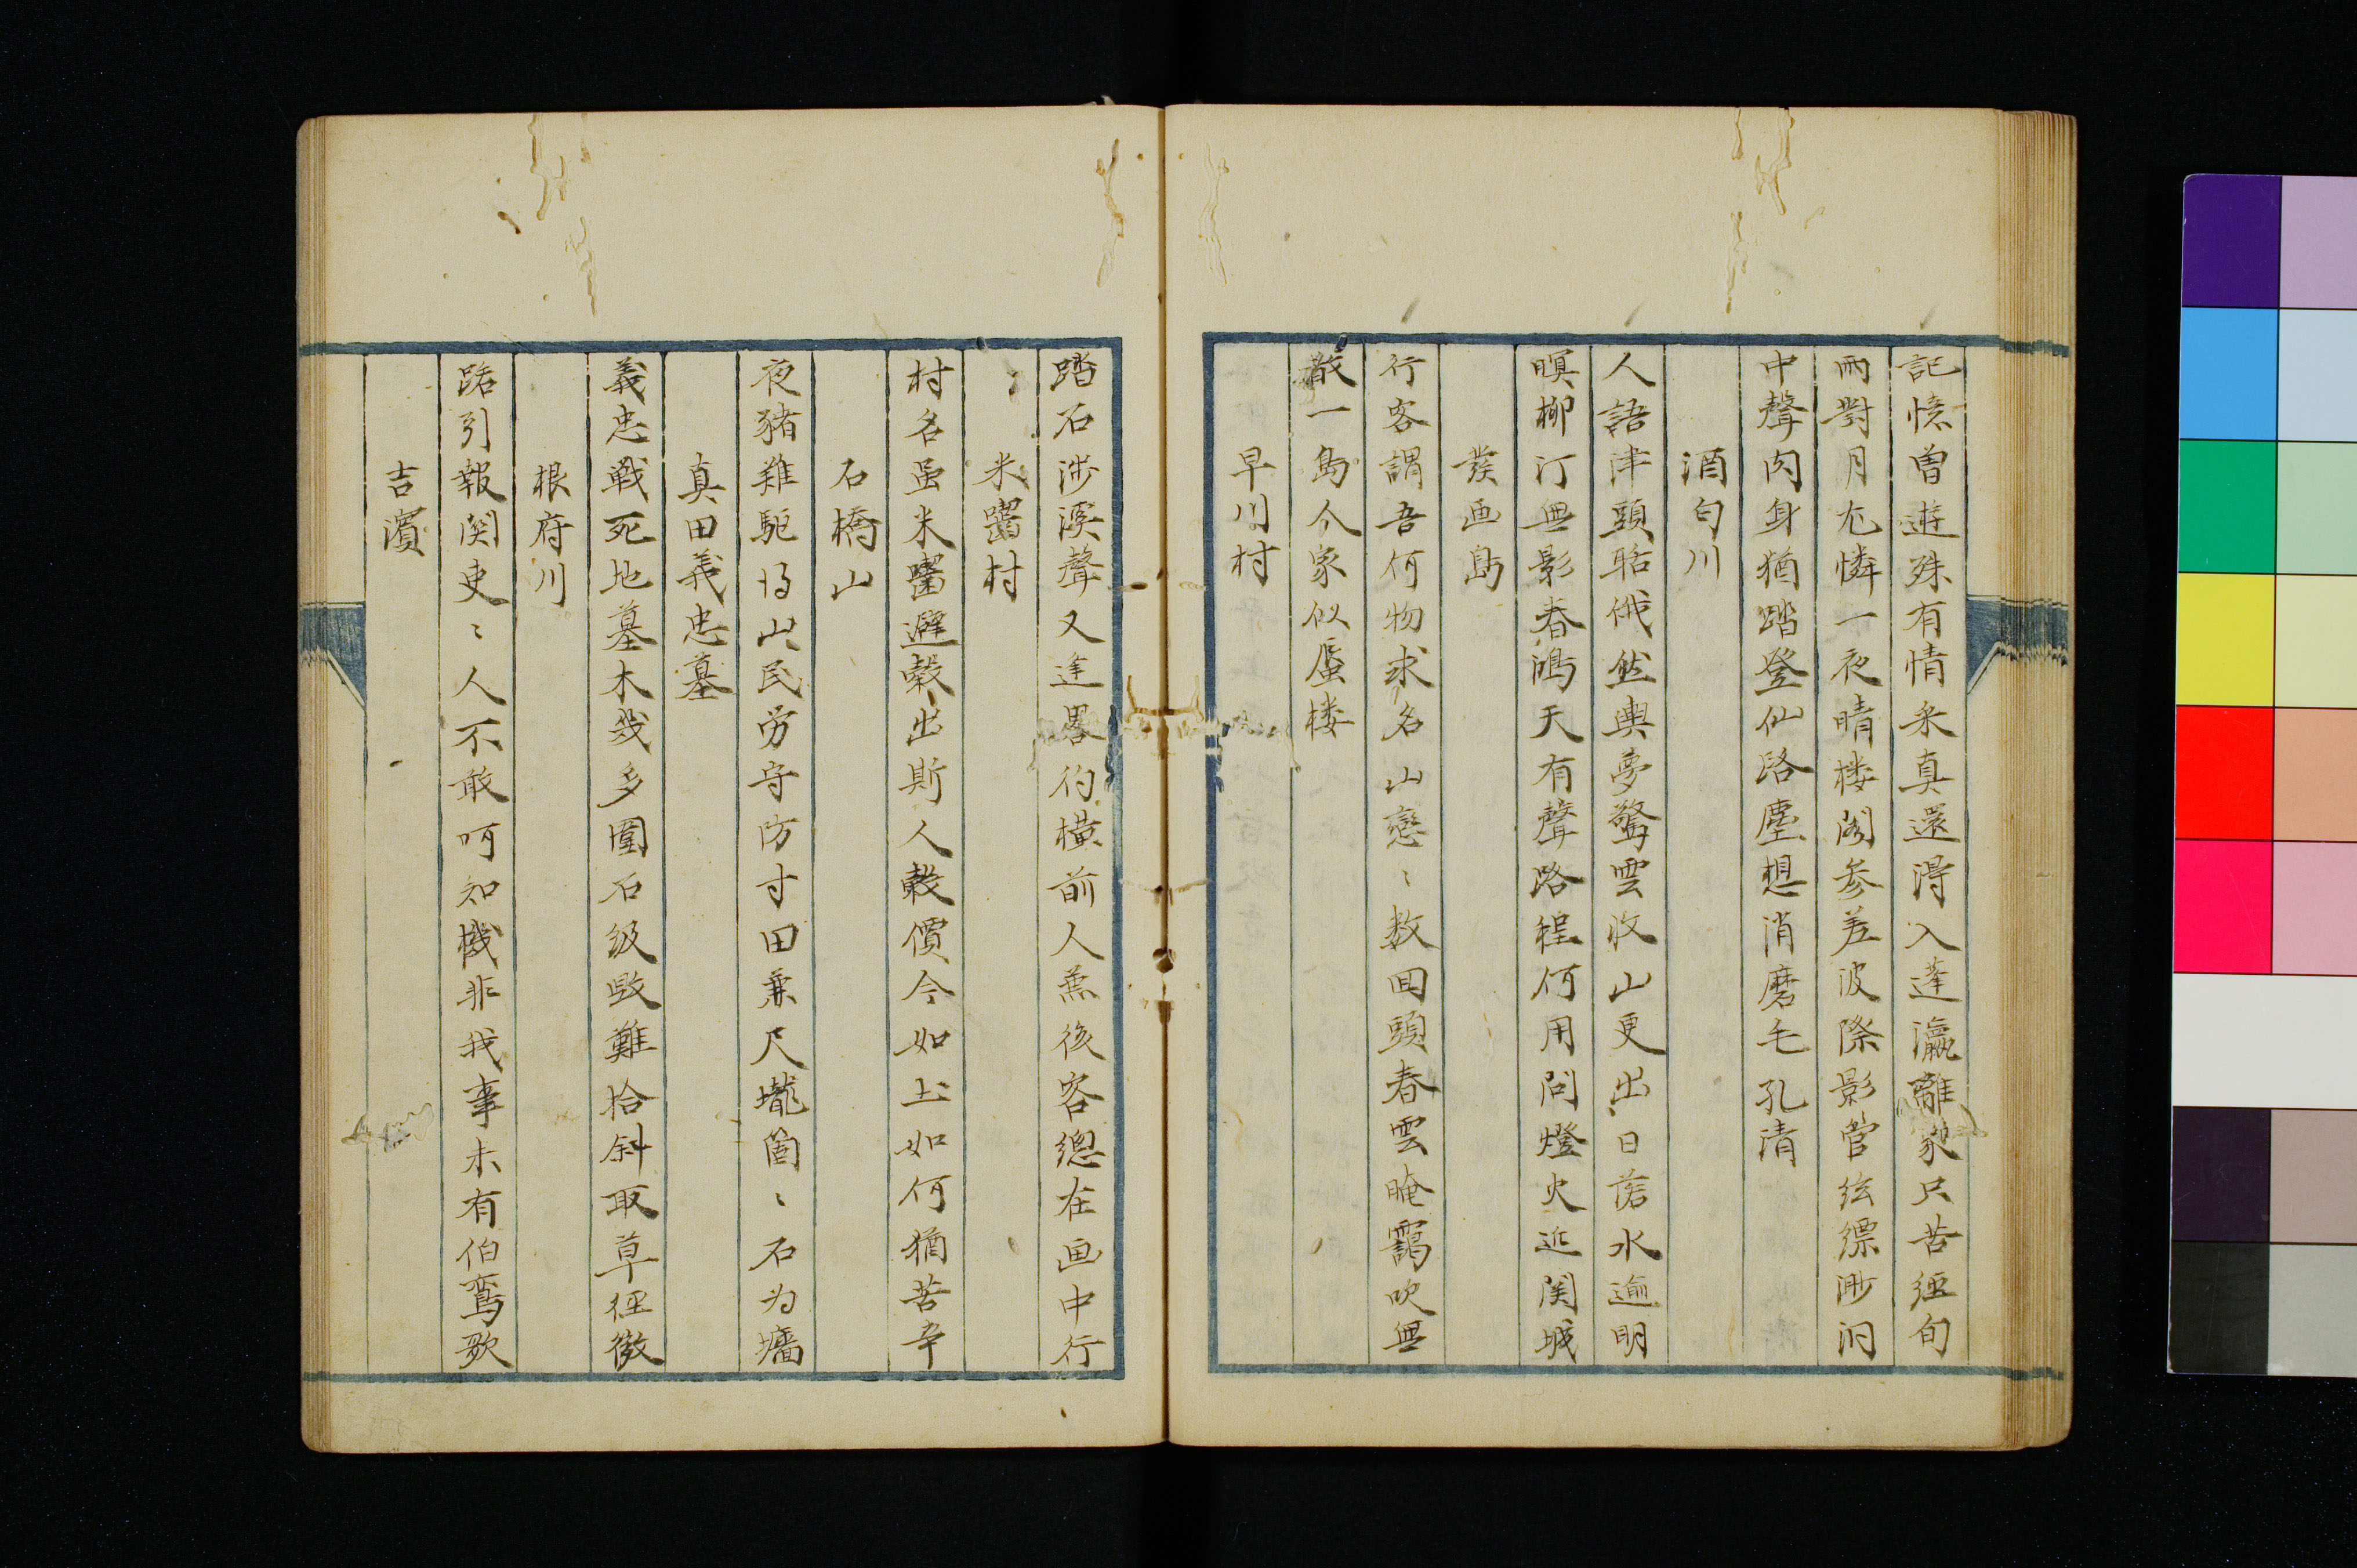 記憶曽遊殊有情采真還得入蓬瀛離家只苦経旬
雨対月尤憐一夜晴楼閣参差波際影管絃縹渺洞
中聲肉身猶踏登仙路塵想消磨毛孔清
酒匂川
人語津頭聒俄然輿夢驚雲收山更出日落水逾明
暝柳汀無影春鴻天有聲路程何用問燈火近関城
発画島
行客謂吾何物求名山恋〻数回頭春雲晻靄吹無
散一島人家似蜃楼
早川村
踏石渉渓聲又逢畧彴横前人兼後客總在画中行
米噛村
村名虽米噛避穀出斯人穀價今如玉如何猶苦辛
石橋山
夜猪難駆得山民労守防寸田兼尺壠箇〻石為墻
真田義忠墓
義忠戦死地墓木幾多圍石級毀難拾斜取草径微
根府川
路引報関吏〻人不敢呵知機非我事未有伯鸞歌
吉濱